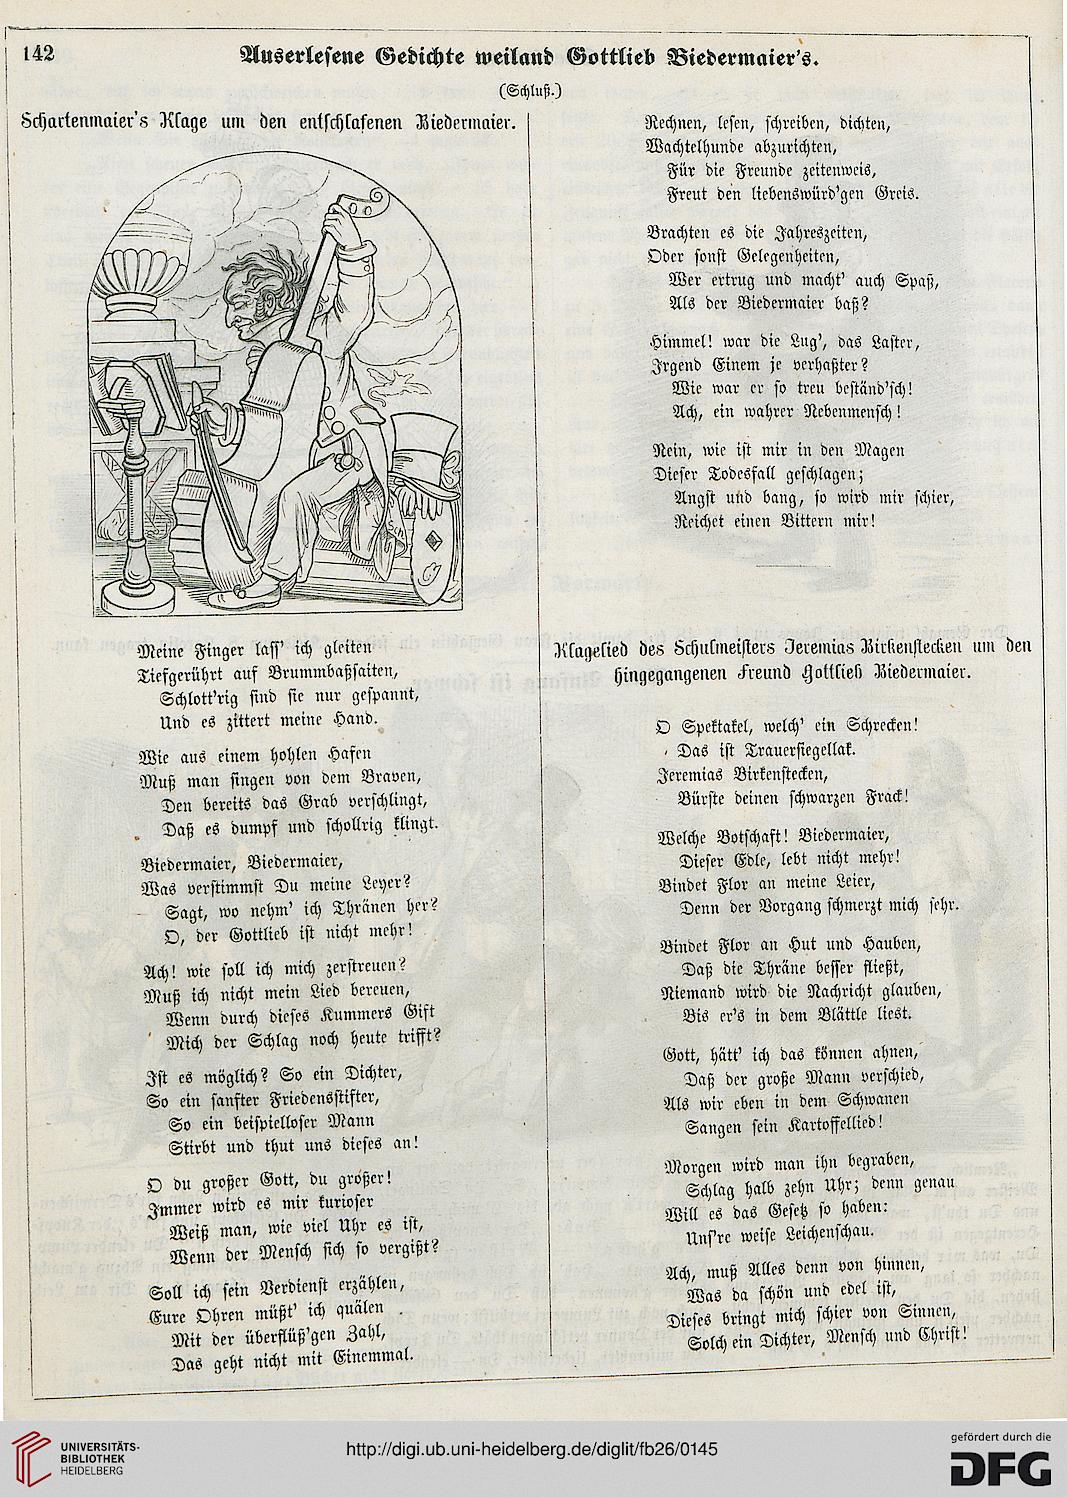 142
Auserlesene Gedichte weiland Gottlieb Biedermaier's.
(Schluß.)
Schartenmaier's Klage um den entschlafenen Biedermaier.
Meine Finger lass' ich gleiten
Tiefgerührt auf Brummbaßsaiten,
Schlott'rig sind sie nur gespannt,
Und es zittert meine Hand.
Wie aus einem hohlen Hafen
Muß man singen von dem Braven,
Den bereits das Grab verschlingt,
Daß es dumpf und schollrig klingt.
Biedermaier, Biedermaier,
Was verstimmst Du meine Leyer?
Sagt, wo nehm' ich Thränen her?
O, der Gottlieb ist nicht mehr!
Ach! wie soll ich mich zerstreuen?
Muß ich nicht mein Lied bereuen,
Wenn durch dieses Kummers Gift
Mich der Schlag noch heute trifft?
Ist es möglich? So ein Dichter,
So ein sanfter Friedensstifter,
So ein beispielloser Mann
Stirbt und thut uns dieses an!
O du großer Gott, du großer!
Immer wird es mir kurioser
Weiß man, wie viel Uhr es ist,
Wenn der Mensch sich so vergißt?
Soll ich sein Verdienst erzählen,
Eure Ohren müßt' ich quälen
Mit der überflüß'gen Zahl,
Das geht nicht mit Einemmal.
Rechnen, lesen, schreiben, dichten,
Wachtelhunde abzurichten,
Für die Freunde zeitenweis,
Freut den liebenswürd'gen Greis.
Brachten es die Jahreszeiten,
Oder sonst Gelegenheiten,
Wer ertrug und macht' auch Spaß,
Als der Biedermaier baß?
Himmel! war die Lug', das Laster,
Irgend Einem je verhaßter?
Wie war er so treu beständ'sch!
Ach, ein wahrer Nebenmensch!
Nein, wie ist mir in den Magen
Dieser Todesfall geschlagen;
Angst und bang, so wird mir schier,
Reichet einen Bittern mir!
Klagelied des Schulmeisters Jeremias Birkenstecken um den
hingegangenen Freund Gottlieb Biedermaier.
O Spektakel, welch' ein Schrecken!
Das ist Trauersiegellak.
Jeremias Birkenstecken,
Bürste deinen schwarzen Frack!
Welche Botschaft! Biedermaier,
Dieser Edle, lebt nicht mehr!
Bindet Flor an meine Leier,
Denn der Vorgang schmerzt mich sehr.
Bindet Flor an Hut und Hauben,
Daß die Thräne besser fließt,
Niemand wird die Nachricht glauben,
Bis er's in dem Blättle liest.
Gott, hätt' ich das können ahnen,
Daß der große Mann verschied,
Als wir eben in dem Schwanen
Sangen sein Kartoffellied!
Morgen wird man ihn begraben,
Schlag halb zehn Uhr; denn genau
Will es das Gesetz so haben:
Uns're weise Leichenschau.
Ach, muß Alles denn von hinnen,
Was da schön und edel ist,
Dieses bringt mich schier von Sinnen,
Solch ein Dichter, Mensch und Christ!
UNIVERSITÄTS-
BIBLIOTHEK
HEIDELBERG
http://digi.ub.uni-heidelberg.de/diglit/fb26/0145
gefördert durch die
DFG